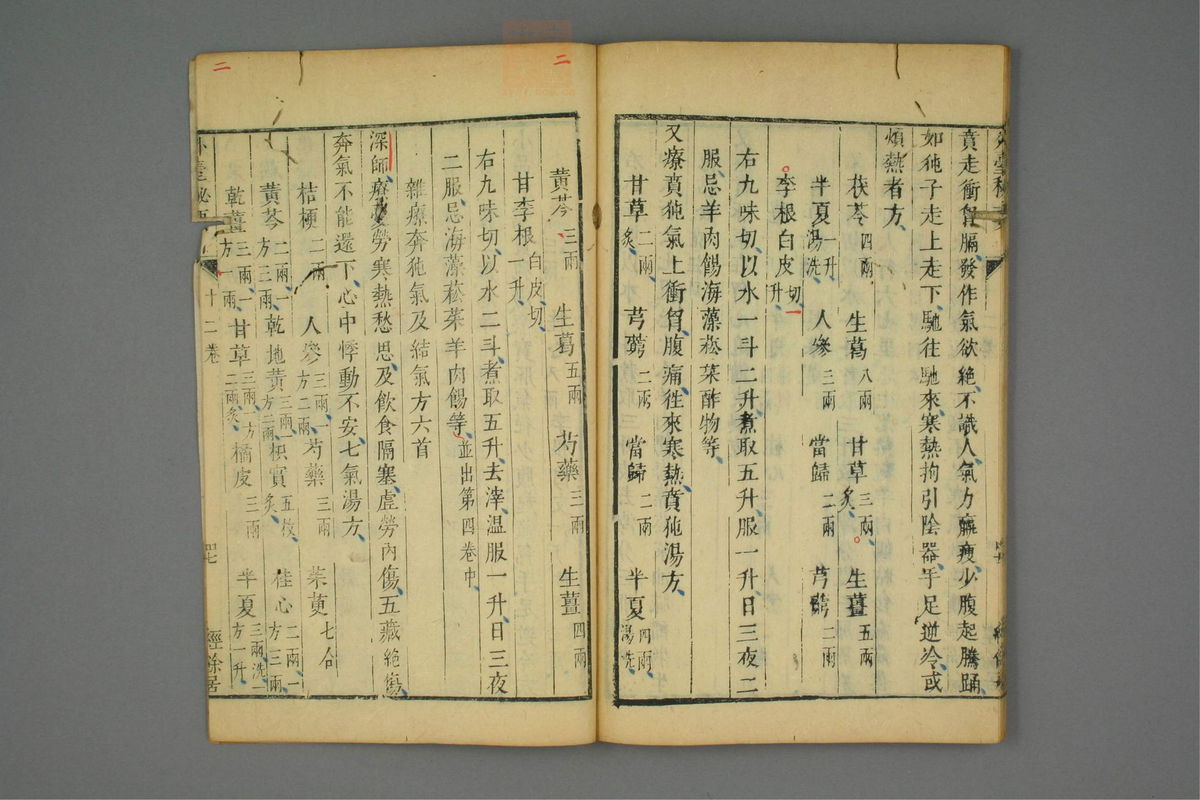 賁走衝胷膈發作氣欲絶不識人氣力羸瘦少腹起騰踊
如㹠子走上走下馳徃馳來寒熱拘引陰器手足逆冷或
煩熱者方
茯苓四兩 生葛八兩 甘草三兩炙 生薑五兩
半夏一升湯洗 人參三兩 當歸二兩 芎藭二兩
李根白皮切一升
右九味切以水一斗二升煮取五升服一升日三夜二
服忌羊肉餳海藻菘菜酢物等
又療賁㹠氣上衝胷腹痛徃來寒熱賁㹠湯方
甘草二兩炙 芎藭二兩 當歸二兩 半夏四兩湯洗
黃芩三兩 生葛五兩 芍藥三兩 生薑四兩
甘李根白皮切一升
右九味切以水二斗煮取五升去滓温服一升日三夜
二服忌海藻菘菜羊肉餳等並出第四卷中
雜療奔㹠氣及結氣方六首
深師療勞寒熱愁思及飲食隔塞虛勞內傷五藏絶傷
奔氣不能還下心中悸動不安七氣湯方
桔梗二兩 人參三兩一方二兩 芍藥三兩 茱萸七合
黃芩二兩一方三兩 乾地黃三兩一方二兩 枳實五枚炙 桂心二兩一方三兩
乾薑三兩一方一兩 甘草三兩一方二兩炙 橘皮三兩 半夏三兩洗一方一升
十二卷
四七
經餘居
二
二